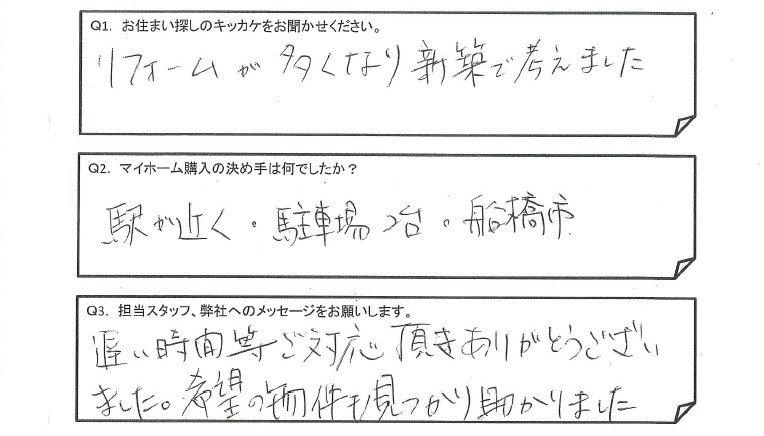 Q1. お住まい探しのキッカケをお聞かせください。
リフォームが多くなり新築で考えました
Q2. マイホーム購入の決め手は何でしたか？
駅が近く・駐車場2台・船橋市
Q3. 担当スタッフ、弊社へのメッセージをお願いします。
遅い時間等ご対応頂きありがとうござい
ました。希望の物件も見つかり助かりました